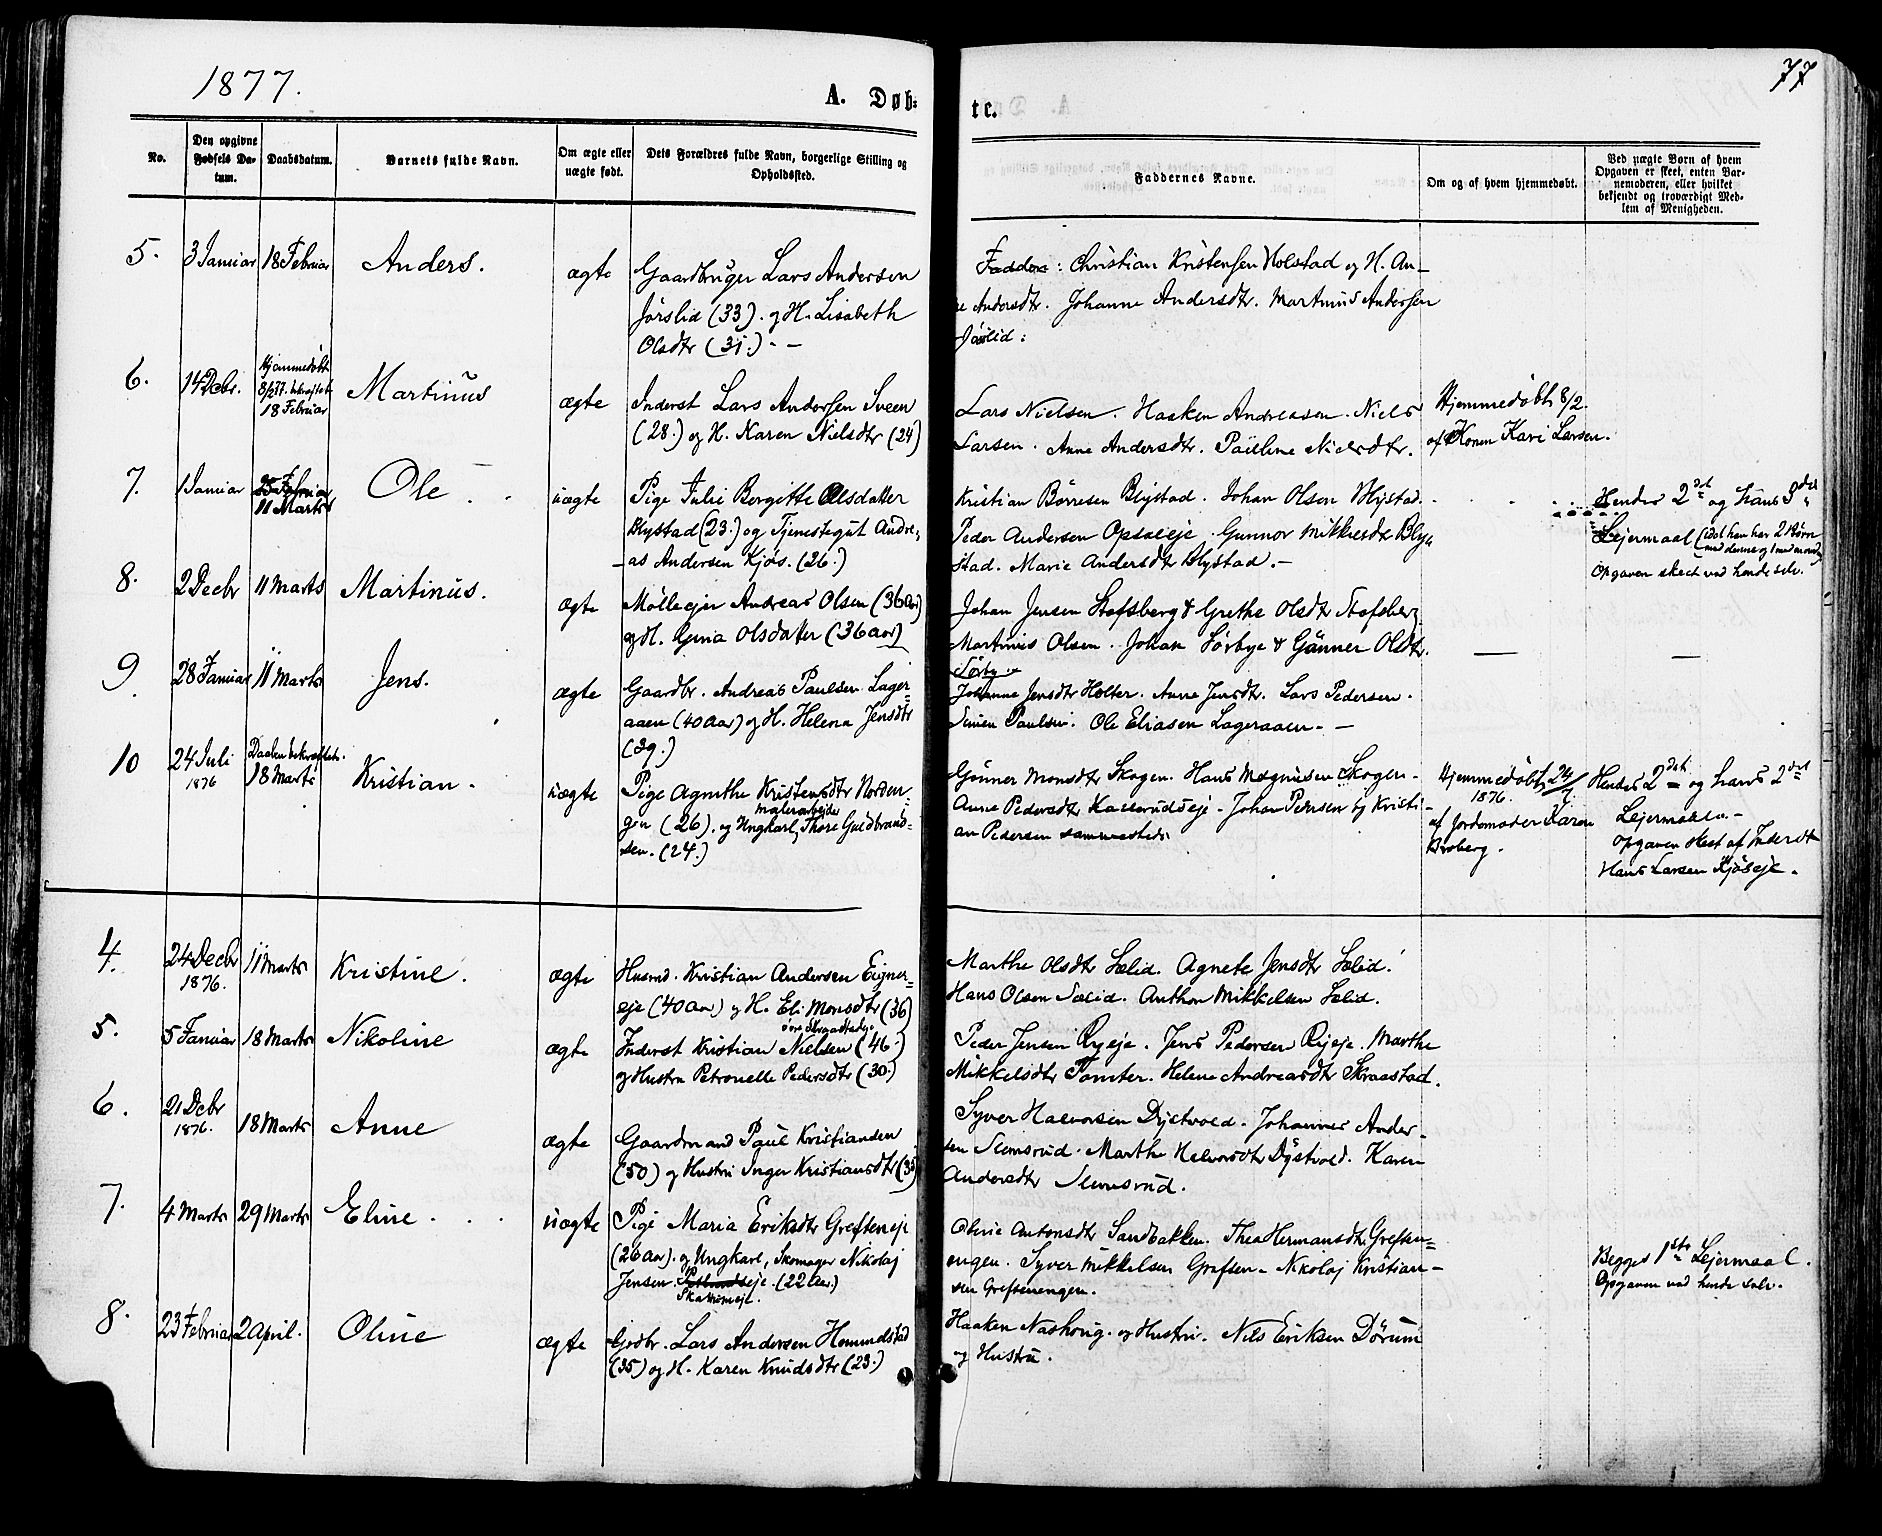 1877.
77
A. Døb=
tc.
No.
Den opgivne Fødsels Da-tum.
Daabsdatum.
Barnets fulde Navn.
Om ægte eller uægte født.
Dets Forældres fulde Navn, borgerlige Stilling og Opholdssted.
Faddernes Navne.
Om og af hvem hjemmedøbt.
Ved uægte Børn af hvem Opgaven er skeet, enten Bar-nemoderen, eller hvilket bekjendt og troværdigt Med-lem af Menigheden.
5. 3 Januar 18 Februar Anders. ægte
Gaardbruger Lars Andersen
Jørslid (33). og H. Lisabeth
Olsdtr (31.) - —
Faddere: Christian Kristensen Holstad og H. An-
ne Andersdtr. Johanne Andersdtr. Martinus Andersen
Jørslid:
6. 14 Decbr. Hjemmedøbt 8/2 77. bekræftet 18 Februar Martinus ægte
Inderst Lars Andersen Sveen
(28.) og H. Karen Nielsdtr (24)
Lars Nielsen. Haaken Andreasen. Niels
Larsen. Anne Andersdtr. Pauline Nielsdtr.
Hjemmedøbt 8/2.
af Konen Kari Larsen.
7. 1 Januar 11 Marts Ole uægte
Pige Julie Borgitte Olsdatter
Blystad (23.) og Tjenestegut Andre=
as Andersen Kjøs. (26.)
Kristian Børresen Blystad. Johan Olsen Blystad.
Peder Andersen Opsaleje. Gunnor Mikkelsdtr Bly=
stad. Marie Andersdtr Blystad. —
Hendes 2det og hans 3die
Lejermaal (idet han har 2 Børn
med denne og 1 med anden)
Opgaven skeet ved hende selv.
8. 2 Decbr 11 Marts Martinus. ægte
Mølleejer Andreas Olsen (36 Aar)
og H. Gina Olsdatter (36 aar)
Johan Jensen Stofsberg & Grethe Olsdtr Stofsberg.
Martinus Olsen. Johan Sørbye & Gunner Olsdtr.
Sørby
9. 28 Januar 11 Marts Jens. ægte
Gaardbr. Andreas Paulsen Lager=
aaen (40 Aar) og H. Helena Jensdtr
(39.)
Johanne Jensdtr Holter. Anne Jensdtr. Lars Pedersen.
Simen Paulsen. Ole Eliasen Lageraaen. —
10 24 Juli 1876 Daaben bekræftet. 18 Marts Kristian. uægte
Pige Agnethe Kristensdtr Norden=
gen (26). og Ungkarl, malerarbejder Thore Guldbrand=
sen. (24.)
Gunner Monsdtr Skogen. Hans Magnusen Skogen.
Anne Pedersdtr Karlsrudseje. Johan Pedersen og Kristi-
an Pedersen sammesteds
Hjemmedøbt 24/7
1876.
af Jordemoder Karen
Broberg.
Hendes 2det og hans 2det
Lejermaal. -
Opgaven skeet af Inderst
Hans Larsen Kjøseje.
4. 24 Decbr 1876. 11 Marts Kristine. ægte
Husmd. Kristian Andersen Eigner=
eje (40 aar) og H. Eli Monsdtr (36)
Marthe Olsdtr Sælid. Agnete Jensdtr Sælid.
Hans Olsen Sælid. Anthon Mikkelsen Sælid.
5. 5 Januar 18 Marts Nikoline ægte
Inderst Kristian Nielsen (46)
og Hustru Petronelle Pedersdtr (30.)
Peder Jensen Ryeje. Jens Pedersen Ryeje. Marthe
Mikkelsdtr Tomter. Helene Andreasdtr Skraastad.
6. 21 Dcbr 1876. 18 Marts Anne ægte
Gaardmand Paul Kristiansen
(50) og Hustru Inger Kristiansdtr (35)
Syver Halvorsen Dystvold. Johannes Ander-
sen Slemsrud. Marthe Halvorsdtr Dystvold. Karen
Andersdtr Slemsrud.
7. 4 Marts 29 Marts Eline uægte
Pige Maria Eriksdtr Grefteneje
(26 aar). og Ungkarl, Skomager Nikolaj
Jensen (22 Aar.)
Oline Antonsdtr Sandbakken. Thea Hermansdtr Grefsen=
engen. Syver Mikkelsen Grefsen. Nikolaj Kristian-
sen Grefsenengen.
Begges 1ste Lejermaal.
Opgaven ved hende selv.
8. 23 Februar 2 April. Oline ægte
Grdbr. Lars Andersen Homundstad
(35) og H. Karen Knudsdtr (23.)
Haaken Naskoug og Hustru. Nils Eriksen Dørum
og Hustru.